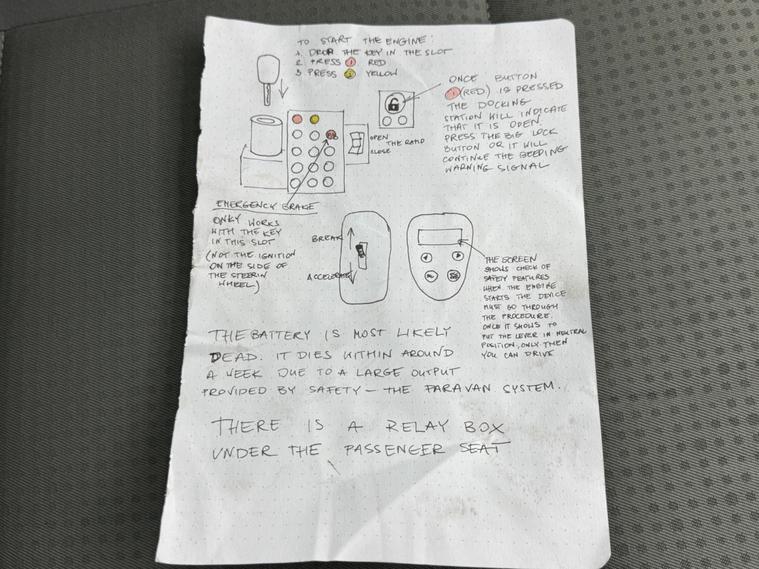 TO START THE ENGINE:
1. DROP THE KEY IN THE SLOT
2. PRESS 1 RED
3 PRESS 2 YELLOW
ONCE BUTTON
1 (RED) IS PRESSED
THE DOCKING
STATION WILL INDICATE
THAT IT IS OPEN.
PRESS THE BIG LOCK
BUTTON OR IT WILL
CONTINUE THE BEEPING
WARNING SIGNAL
OPEN
THE RAMP
CLOSE
EMERGENCY BRAKE
ONLY WORKS
WITH THE KEY
IN THIS SLOT
(NOT THE IGNITION
ON THE SIDE OF
THE STEERIN
WHEEL)
BREAK
ACCELERATE
THE SCREEN
SHOWS CHECK OF
SAFETY FEATURES
WHEN THE ENGINE
STARTS THE DEVICE
MUST GO THROUGH
THE PROCEDURE.
ONCE IT SHOWS TO
PUT THE LEVER IN NEUTRAL
POSITION, ONLY THEN
YOU CAN DRIVE
THE BATTERY IS MOST LIKELY
DEAD. IT DIES WITHIN AROUND
A WEEK DUE TO A LARGE OUTPUT
PROVIDED BY SAFETY – THE PARAVAN SYSTEM.
THERE IS A RELAY BOX
UNDER THE PASSENGER SEAT